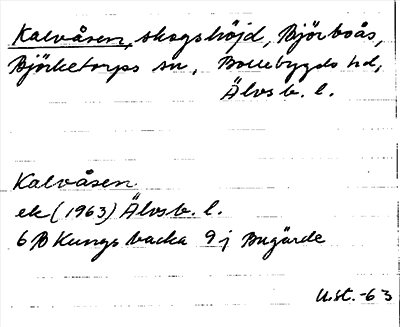 Kalvåsen, skogshöjd, Björboås,
Björketorps sn, Bollebygds hd,
Älvsb. l.
Kalvåsen
ek (1963) Älvsb. l.
6B Kungsbacka 9j Bugärde
U.st.-63